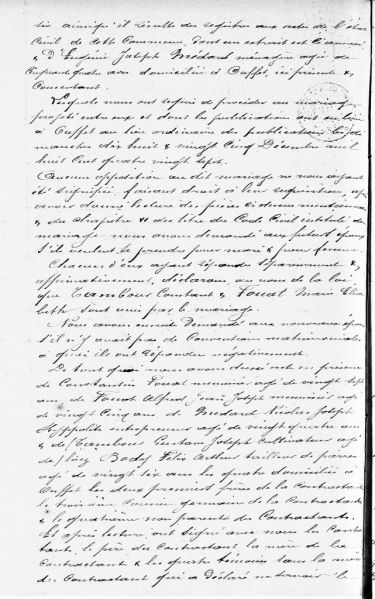 ainsi qu'il résulte du registre aux actes de l'état
civil de cette Commune, dont un extrait est ci annexé
& d'Eugénie Joseph Médard ménagère agée de
quatre ans domiciliée à Ouffet, ici présente &
Consentant.
Lesquels nous ont requis de procéder au mariage
projeté entre eux et dont les publications ont eu lieu
à Ouffet au lieu ordinaire des publications les di-
manches dix huit & vingt cinq Décembre mil
huit cent quatre vingt sept.
Aucune opposition au dit mariage ne nous ayant
été signifiée, faisant droit à leur réquisition,
avoir donné lecture des pièces ci dessus mentionnées
& du chapitre VI du titre du Code Civil intitulé du
mariage nous avons demandé aux futurs époux
s'ils veulent se prendre pour mari & pour femme.
Chacun d'eux ayant répondu séparément &
affirmativement, déclarons au nom de la loi
que Tambour Constant & Fouat Marie Elisa
beth sont unis par le mariage.
Nous avons ensuite demandé aux nouveaux époux
s'il n'y avait pas de Conventions matrimoniales
à quoi ils ont répondu négativement.
De tout quoi nous avons dressé acte en présence
de Constantin Fouat menuisier agé de vingt sept
ans, de Fouat Alfred Jean Joseph menuisier agé
de vingt cinq ans, de Médard Nicolas Joseph
Hyppolite entrepreneur agé de vingt quatre ans
& de Tambour Gustave Joseph Cultivateur agé
de Félix Arthur tailleur de pierres
agé de vingt six ans les quatre domiciliés à
Ouffet les deux premiers frères de la Contractante
le troisième Cousin germain de la Contractante
& le quatrième non parent des Contractants.
Et après lecture, ont signé avec nous les Contrac
tants, le père du Contractant la mère de la
Contractante & les quatre témoins sauf la mère
du Contractant qui a déclaré ne savoir le